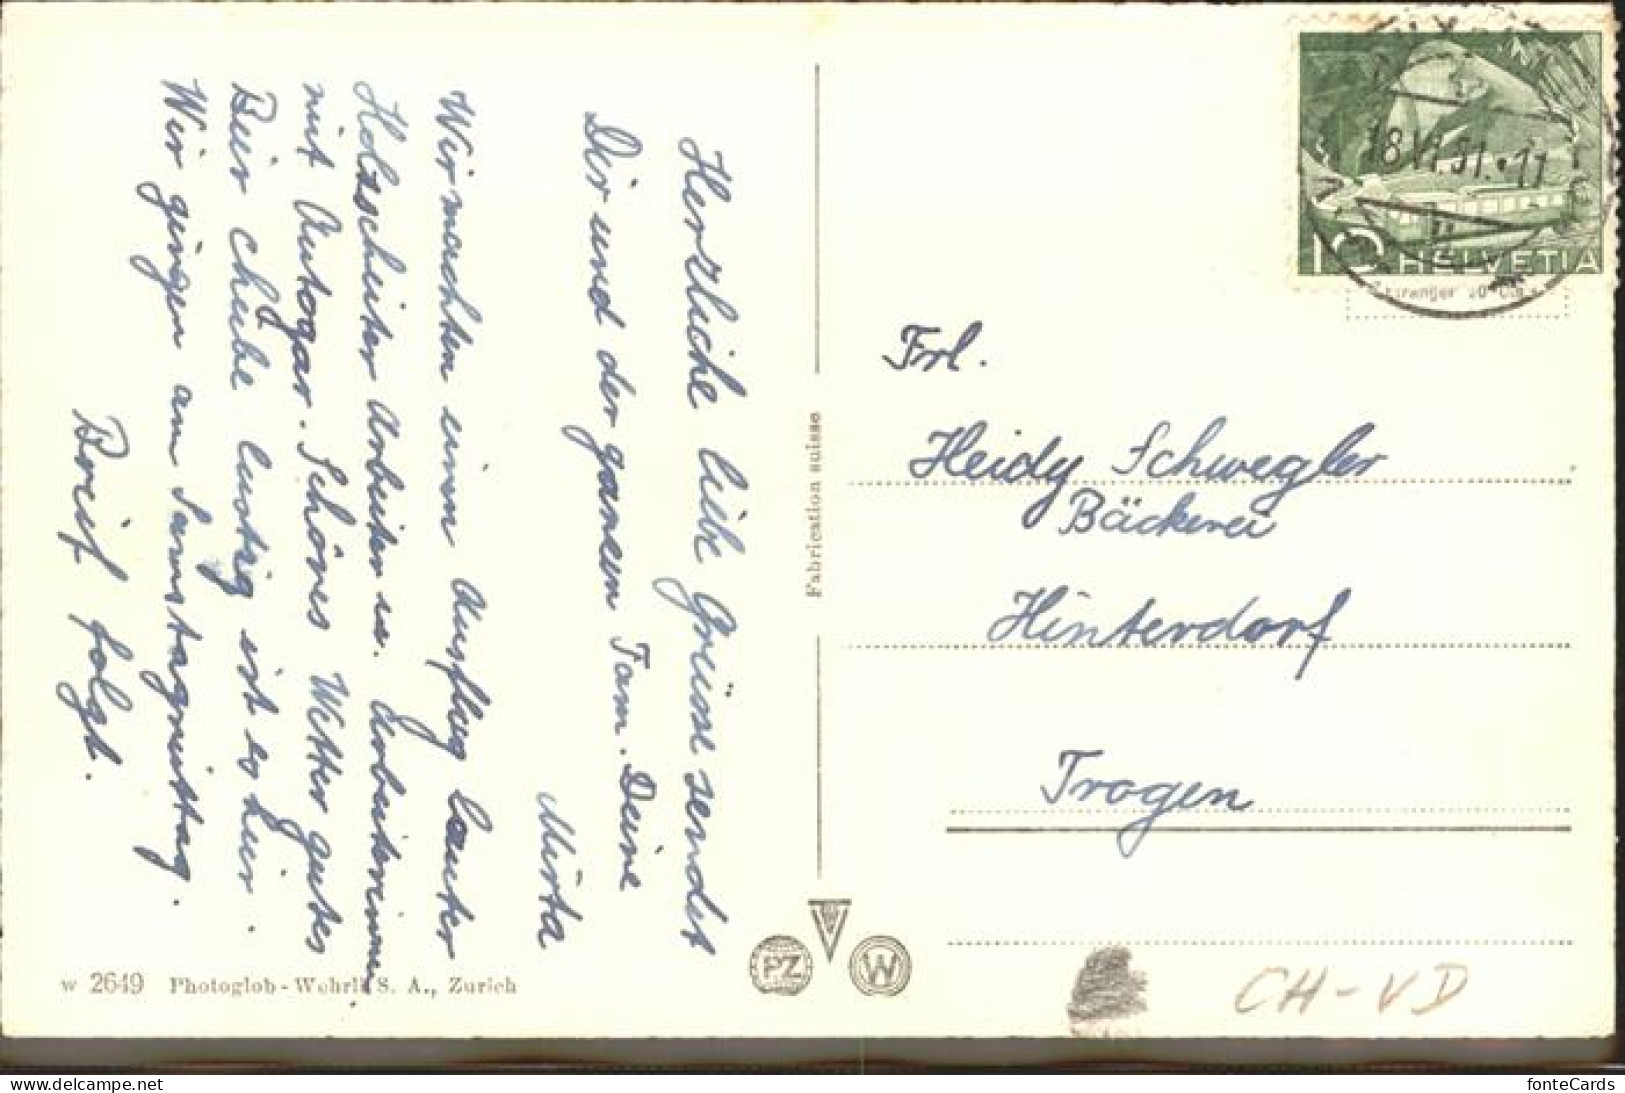 Herzliche liebe Grüsse sendet
Dir und der ganzen Fam. Deine
Mirta
Wir machten einen Ausflug lauter
Holzscheiter Arbeiter u. Arbeiterinnen
mit Autogar. Schönes Wetter gutes
Beir chübe lustig ist es hier.
Wir gingen am Samstagmittag.
Brief folgt.
w 2649 Photoglob-Wehrli S. A., Zurich
Fabrication suisse
PZ
W
18.VI.51.-11
10 HELVETIA
Etranger
Frl.
Heidy Schwegler
Bäckerei
Hinterdorf
Trogen
CH-VD
fonteCards